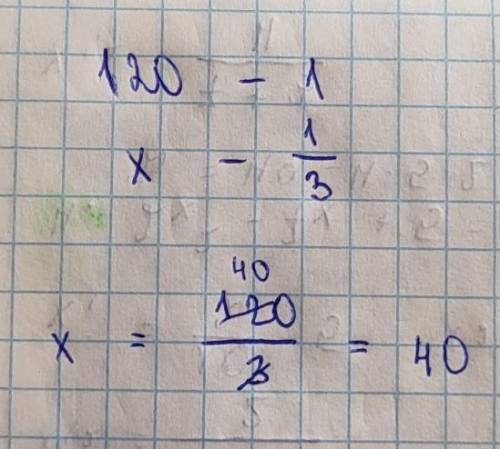 120 - 1
x - 1/3
40
x = 120/3 = 40